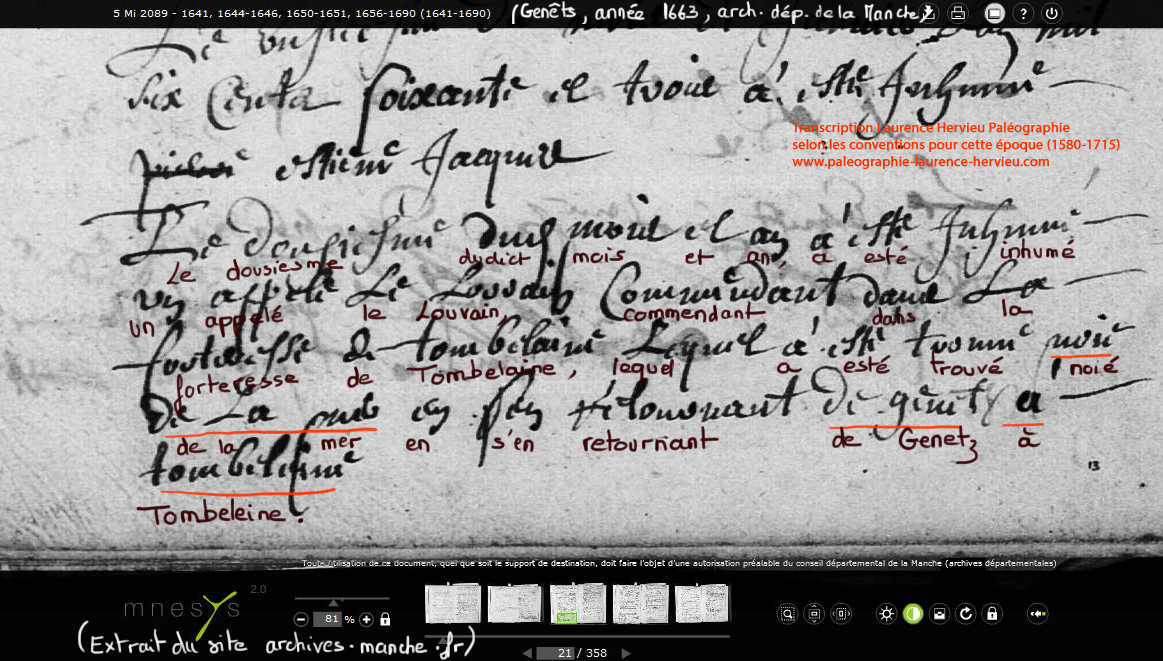 5 Mi 2089 - 1641, 1644-1646, 1650-1651, 1656-1690 (1641-1690) (Genêts, année 1663, arch. dép. de la Manche)
six cents soixante et trois a esté Inhumé
estienne Jacques
Transcription Laurence Hervieu Paléographie
selon les conventions pour cette époque (1580-1715)
www.paleographie-laurence-hervieu.com
Le dousiesme dud mois et an a esté Inhumé
Le dousiesme dudict mois et an, a esté inhumé
un appelé Le Louvain Commendant dans La
un appelé le Louvain, commendant dans la
forteresse de tombelaine Lequel a esté trouvé noié
forteresse de Tombelaine, lequel a esté trouvé noié
De La mer en s'en retournant de genetz a
de la mer en s'en retournant de Genetz à
tombeleine
Tombeleine.
13
Toute utilisation de ce document, quel que soit le support de destination, doit faire l'objet d'une autorisation préalable du conseil départemental de la Manche (archives départementales)
mnesys 2.0
81 %
21 / 358
(Extrait du site archives.manche.fr)